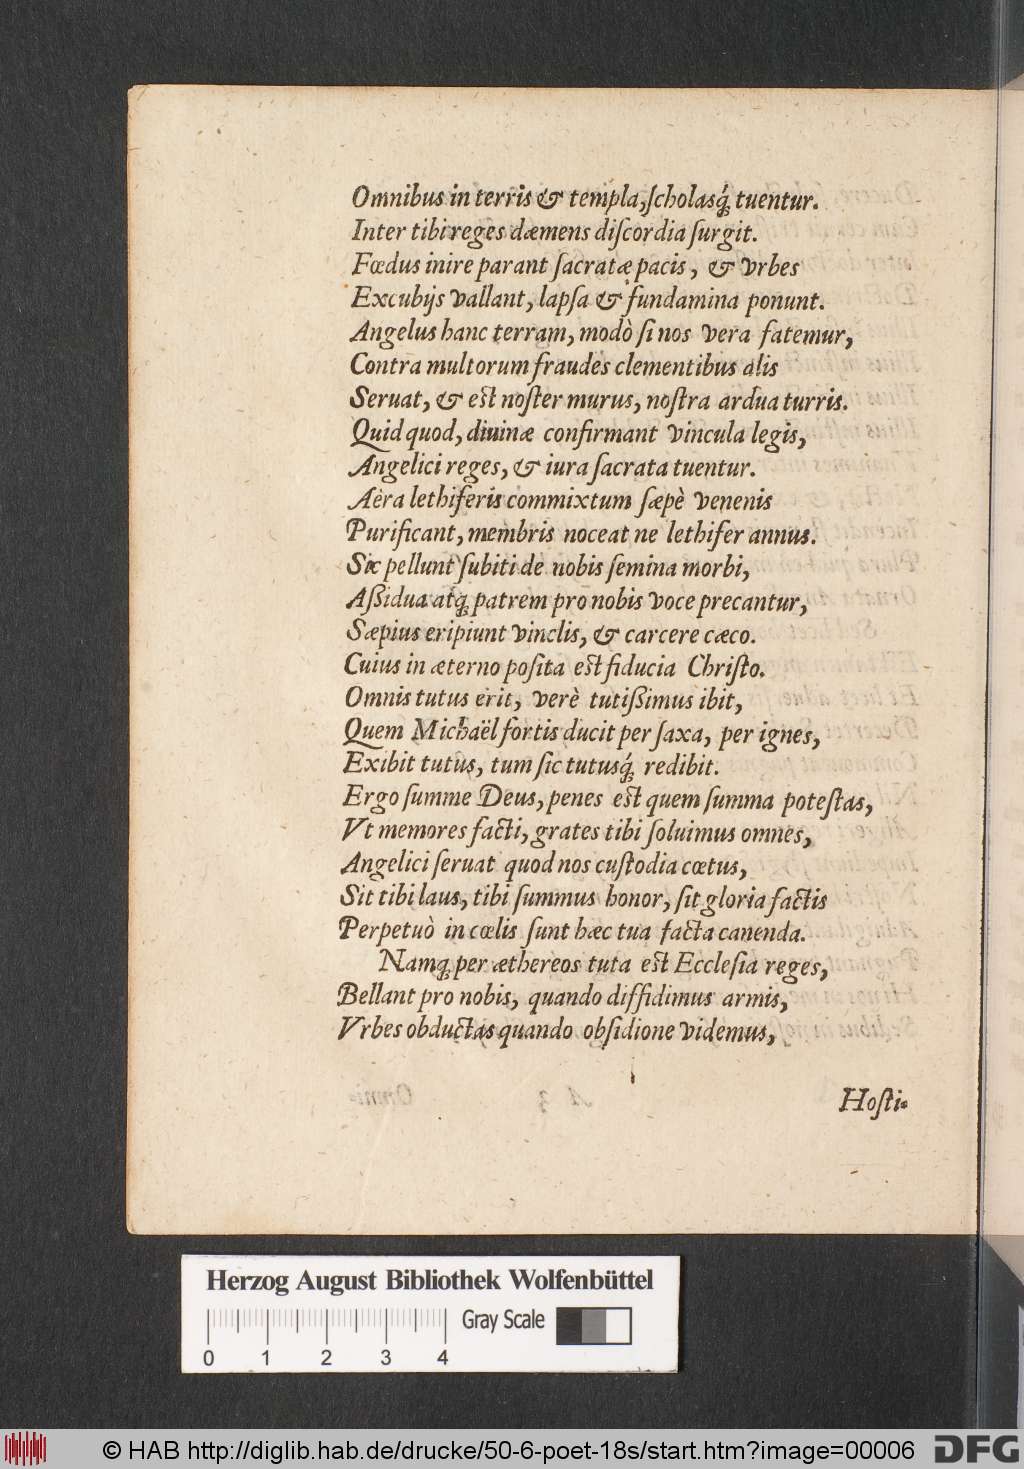 Omnibus in terris & templa, ſcholasq́; tuentur.
Inter tibi reges dæmens diſcordia ſurgit.
Fœdus inire parant ſacratæ pacis, & vrbes
Excubijs vallant, lapſa & fundamina ponunt.
Angelus hanc terram, modò ſi nos vera fatemur,
Contra multorum fraudes clementibus alis
Seruat, & eſt noſter murus, noſtra ardua turris.
Quid quod, diuinæ confirmant vincula legis,
Angelici reges, & iura ſacrata tuentur.
Aëra lethiferis commixtum ſæpè venenis
Purificant, membris noceat ne lethifer annus.
Sic pellunt ſubiti de nobis ſemina morbi,
Aßidua atq; patrem pro nobis voce precantur,
Sæpius eripiunt vinclis, & carcere cæco.
Cuius in æterno poſita eſt fiducia Chriſto.
Omnis tutus erit, verè tutißimus ibit,
Quem Michaël fortis ducit per ſaxa, per ignes,
Exibit tutus, tum ſic tutusq́; redibit.
Ergo ſumme Deus, penes eſt quem ſumma poteſtas,
Vt memores facti, grates tibi ſoluimus omnes,
Angelici ſeruat quod nos cuſtodia cœtus,
Sit tibi laus, tibi ſummus honor, ſit gloria factis
Perpetuò in cœlis ſunt hæc tua facta canenda.
Namq; per æthereos tuta eſt Eccleſia reges,
Bellant pro nobis, quando diffidimus armis,
Vrbes obductas quando obſidione videmus,
Hoſti-
Herzog August Bibliothek Wolfenbüttel
Gray Scale
0 1 2 3 4
© HAB http://diglib.hab.de/drucke/50-6-poet-18s/start.htm?image=00006
DFG